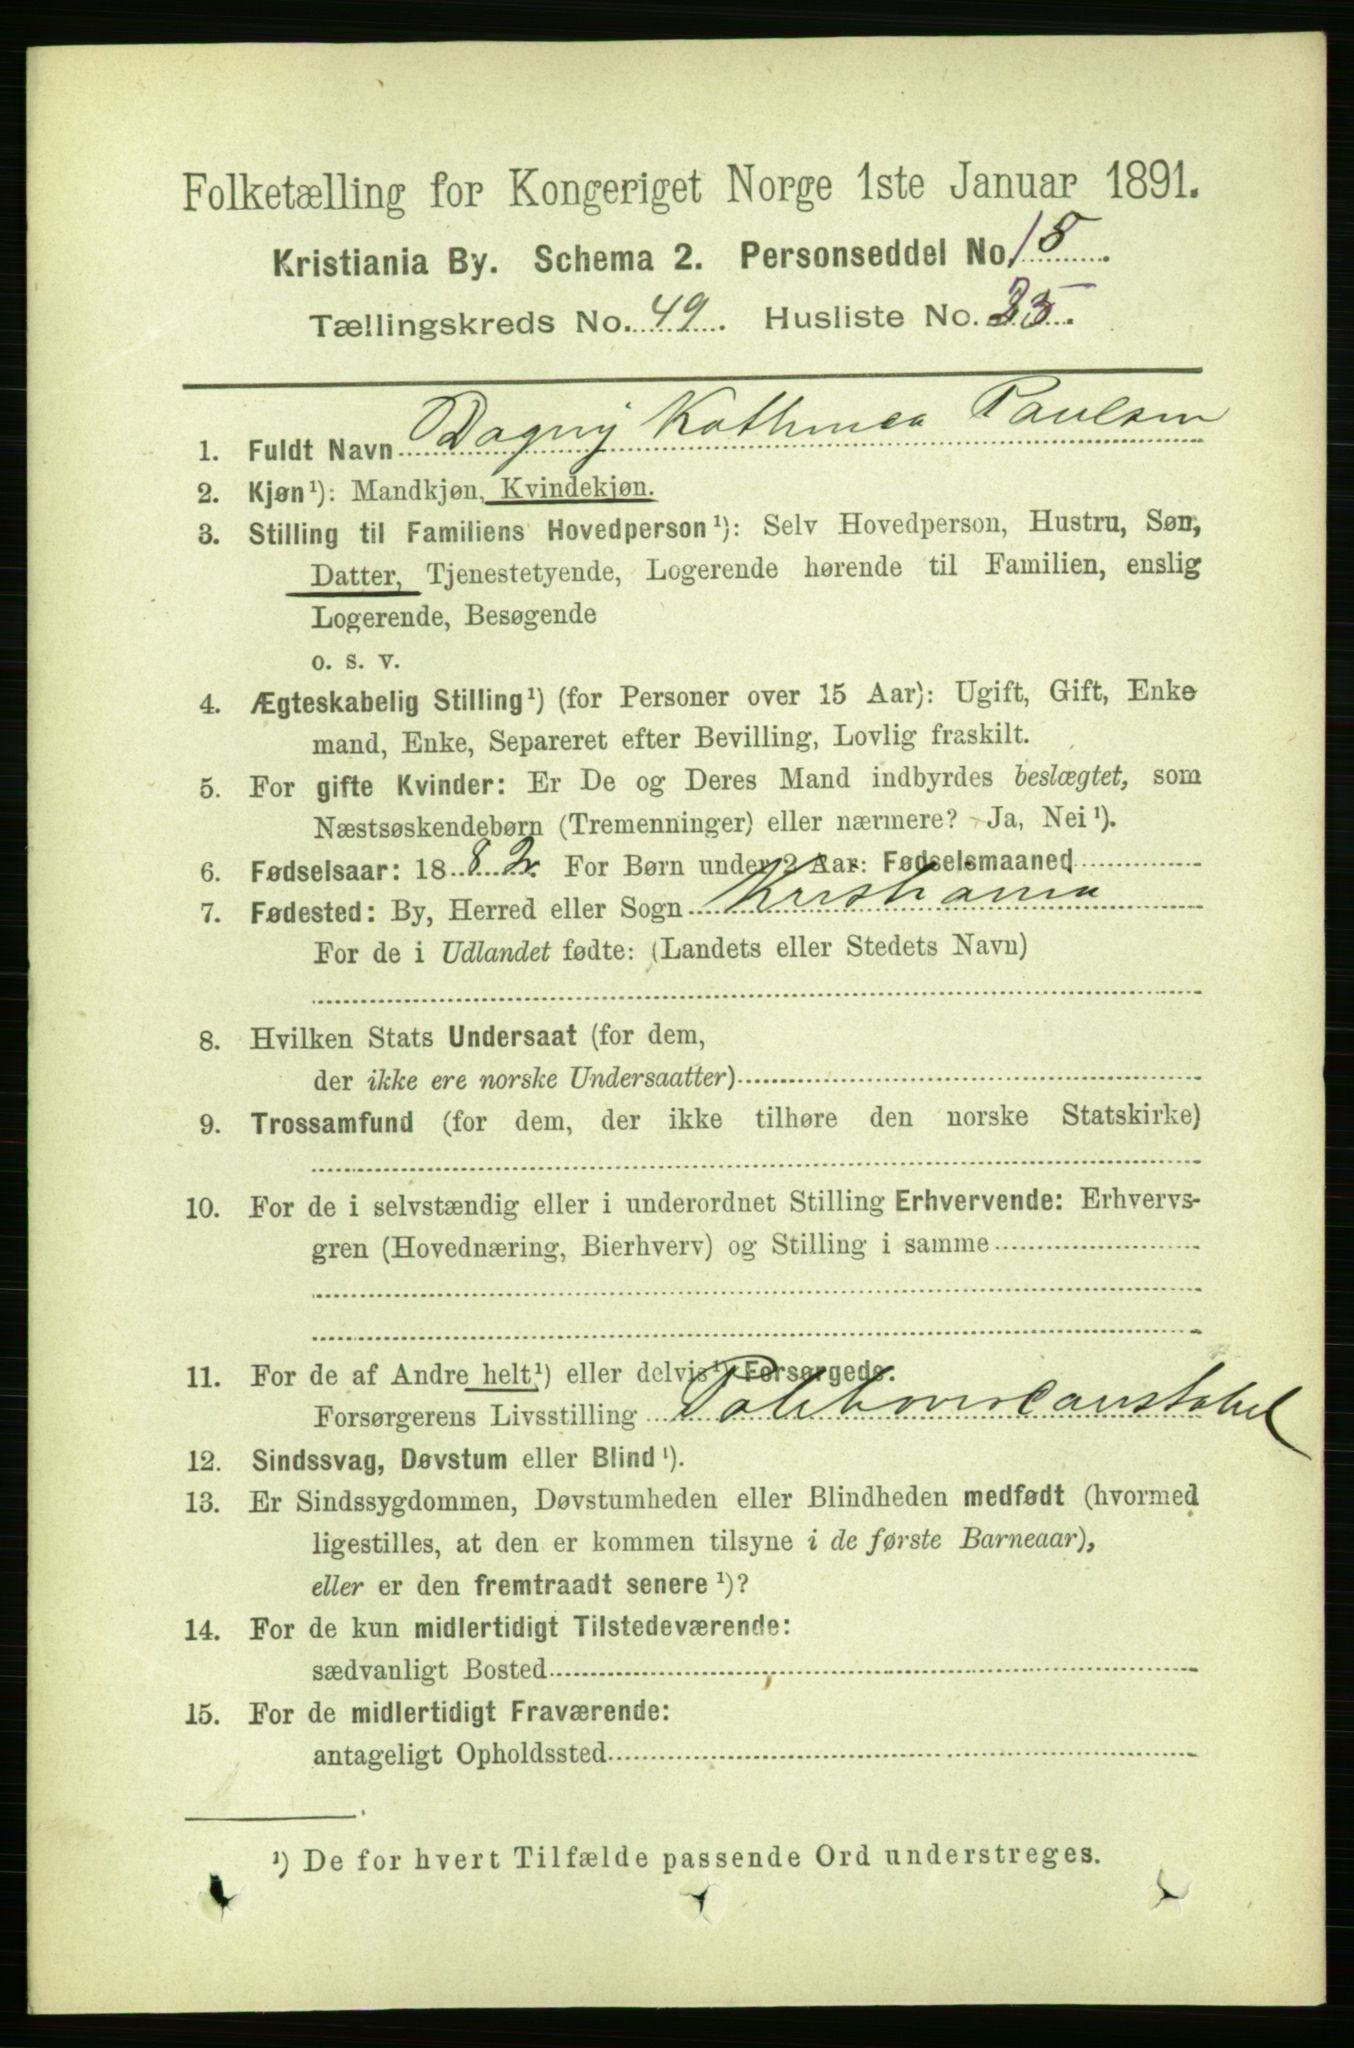 Folketælling for Kongeriget Norge 1ste Januar 1891.
Kristiania By. Schema 2. Personseddel No 15.
Tællingskreds No. 49. Husliste No. 35.
1. Fuldt Navn Dagny Kathinca Paulsen
2. Kjøn¹): Mandkjøn, Kvindekjøn.
3. Stilling til Familiens Hovedperson¹): Selv Hovedperson, Hustru, Søn,
Datter, Tjenestetyende, Logerende hørende til Familien, enslig
Logerende, Besøgende
o. s. v.
4. Ægteskabelig Stilling¹) (for Personer over 15 Aar): Ugift, Gift, Enke
mand, Enke, Separeret efter Bevilling, Lovlig fraskilt.
5. For gifte Kvinder: Er De og Deres Mand indbyrdes beslægtet, som
Næstsøskendebørn (Tremenninger) eller nærmere? Ja, Nei¹).
6. Fødselsaar: 1882. For Børn under 2 Aar: Fødselsmaaned
7. Fødested: By, Herred eller Sogn Kristiania
For de i Udlandet fødte: (Landets eller Stedets Navn)
8. Hvilken Stats Undersaat (for dem,
der ikke ere norske Undersaatter)
9. Trossamfund (for dem, der ikke tilhøre den norske Statskirke)
10. For de i selvstændig eller i underordnet Stilling Erhvervende: Erhvervs-
gren (Hovednæring, Bierhverv) og Stilling i samme
11. For de af Andre helt¹) eller delvis¹) Forsørgede.
Forsørgerens Livsstilling
12. Sindssvag, Døvstum eller Blind¹).
13. Er Sindssygdommen, Døvstumheden eller Blindheden medfødt (hvormed
ligestilles, at den er kommen tilsyne i de første Barneaar),
eller er den fremtraadt senere¹)?
14. For de kun midlertidigt Tilstedeværende:
sædvanligt Bosted
15. For de midlertidigt Fraværende:
antageligt Opholdssted
¹) De for hvert Tilfælde passende Ord understreges.